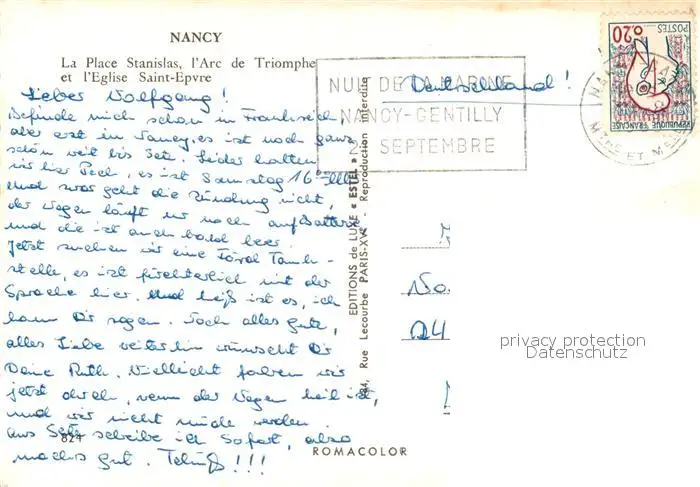 NANCY
La Place Stanislas, l'Arc de Triomphe
et l'Eglise Saint-Epvre
Lieber Wolfgang!
Befinde mich schon in Frankreich
aber erst in Nancy, es ist noch ganz
schön weit bis Sete. Leider hatten
wir hier Pech, es ist Samstag 16
und zwar geht die Zündung nicht,
der Wagen läuft nur noch auf Batterie
und die ist auch bald leer.
Jetzt suchen wir eine Ford Tank-
stelle, es ist fürchterlich mit der
Sprache hier. Und heiß ist es, ich
kann Dir sagen. Noch alles gute,
alles Liebe weiterhin wünscht Dir
Deine Ruth. Vielleicht fahren wir
jetzt durch, wenn der Wagen heil ist,
und wir nicht müde werden.
Aus Sete schreibe ich sofort, also
machs gut. Tschüß!!!
824
ROMACOLOR
EDITIONS de LUXE « ESTEL »
84, Rue Lecourbe PARIS-XVe - Reproduction interdite
NUIT DE LA MARNE
NANCY-GENTILLY
SEPTEMBRE
Deutschland!
0,20
POSTES
REPUBLIQUE FRANÇAISE
MTHE ET M
No.
privacy protection
Datenschutz